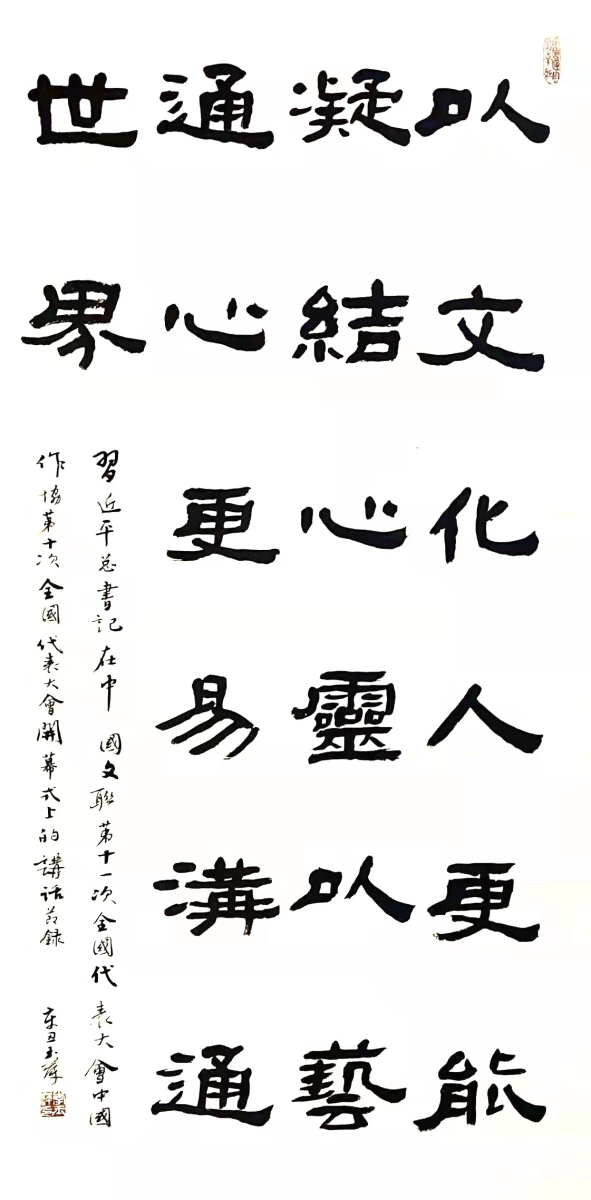 以文化人更能
凝結心靈以藝
通心更易溝通
世界
習近平总書記在中國文聯第十一次全國代表大會中國
作協第十次全國代表大會開幕式上的講话节録
辛丑玉